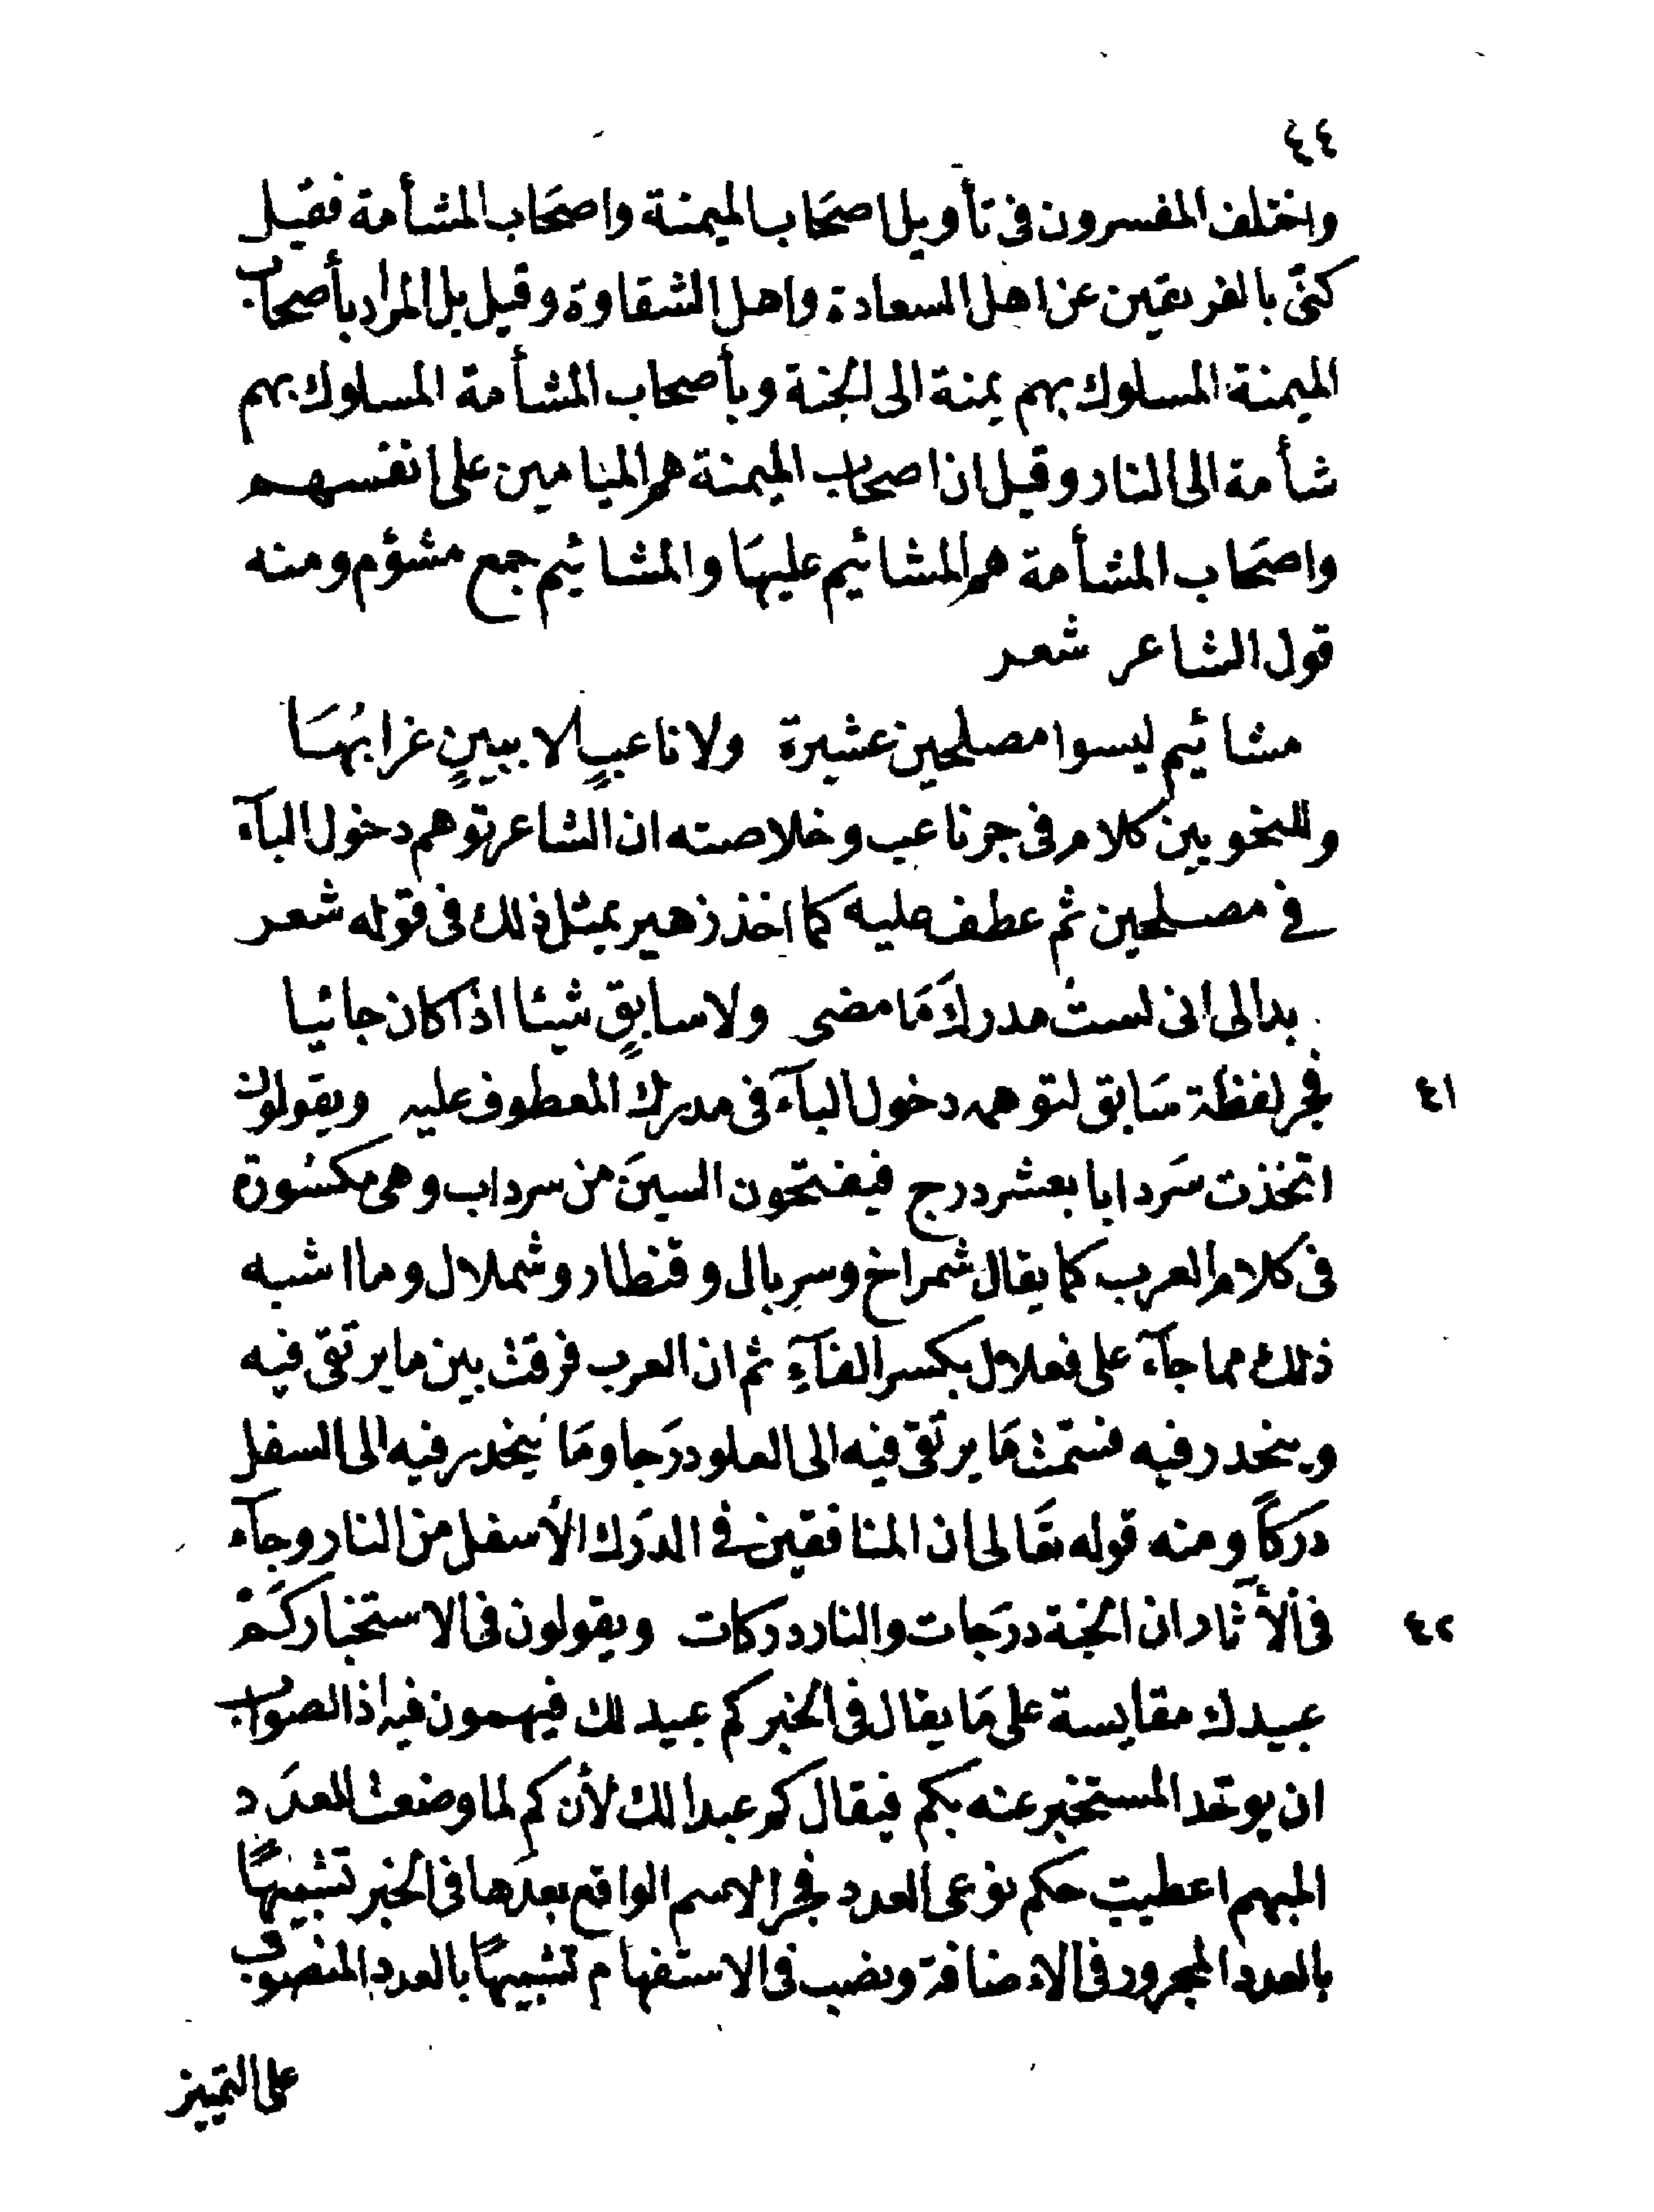 ٤٤
واختلف المفسرون في تأويل اصحَاب الميمنة واصحَاب المشأمة فقيل
كنّى بالفريقين عن اهل السعادة واهل الشقاوة وقيل بل المراد بأصحاب
الميمنة المسلوك بهم يمنة الى الجنة وبأصحاب المشأمة المسلوك بهم
شأمة الى النار وقيل ان اصحاب الميمنة هم الميامين على انفسهم
واصحَاب المشأمة هم المشائيم عليهَا والمشائيم جمع مشؤم ومنه
قول الشاعر شعر
مشائيم ليسوا مصلحين عشيرة ولا ناعبٍ الا ببينٍ غرابُهَا
وللنحويين كلام في جر ناعب وخلاصته ان الشاعر توهم دخول البآء
في مصلحين ثم عطف عليه كما اخذ زهير بمثل ذلك في قوله شعر
بدا لى انى لست مدركَ مَا مضى ولا سابقٍ شيئا اذا كان جائيا
٤١ فجر لفظة سَابق لتوهمه دخول البآء في مدرك المعطوف عليه ويقولون
اتخذت سَردابا بعشر درج فيفتحون السينَ من سرداب وهى مكسُورة
فى كلام العرب كما يقال شمراخ وسربال وقنطار وشملال وما اشبه
ذلك مما جآء على فعلال بكسر الفآءِ ثم ان العرب فرقت بين ما يرتقى فيه
وينحدر فيه فسَمّت مَا يرتقى فيه الى العلو درَجا ومَا يَنحدر فيه الى السفل
درَكاً ومنه قوله تعَالى ان المنافقين في الدرَك الأسفل من النار وجآء
٤٢ فى الأثار ان الجنة درَجات والنار دركات ويقولون فى الاستخبار كَمْ
عبيدك مقايسة على مَا يقال فى الخبر كم عبيد لك فيهمون فيه اذ الصواب
ان يوحّد المستخبر عنه بكم فيقال كم عبدا لك لأن كم لما وضعت للعدَد
المبهم اعطيت حكم نوعى العدد فجر الاسم الواقع بعدَها فى الخبر تشبيهًا
بالعدد المجرور فى الاضافة ونصب فى الاستفهام تشبيهًا بالعدد المنصوب
على التمييز